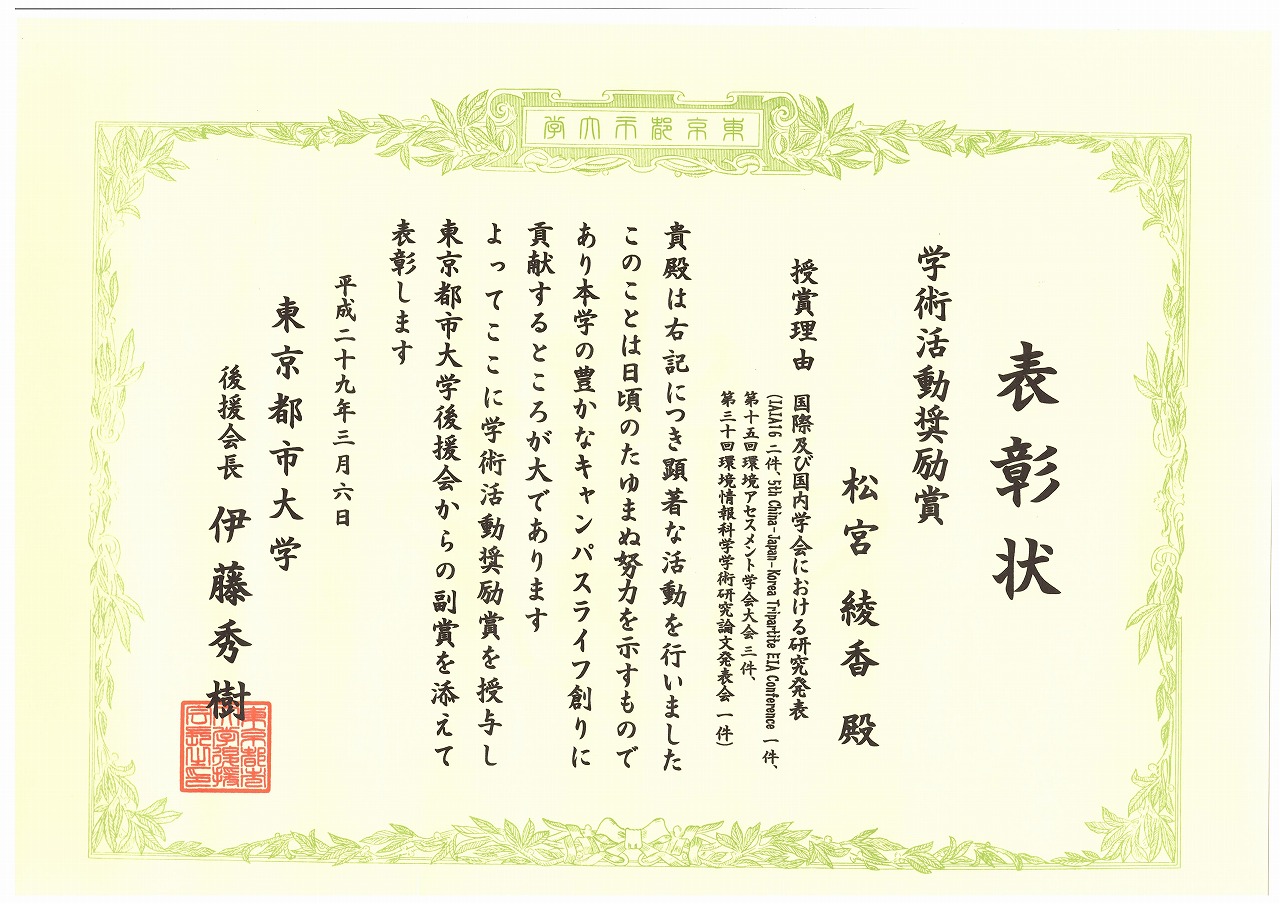 東京都市大学
表彰状
学術活動奨励賞
松宮 綾香 殿
授賞理由 国際及び国内学会における研究発表
(IAIA16 二件、5th China-Japan-Korea Tripartite EIA Conference 一件、
第十五回環境アセスメント学会大会 三件、
第三十回環境情報科学学術研究論文発表会 一件)
貴殿は右記につき顕著な活動を行いました
このことは日頃のたゆまぬ努力を示すもので
あり本学の豊かなキャンパスライフ創りに
貢献するところが大であります
よってここに学術活動奨励賞を授与し
東京都市大学後援会からの副賞を添えて
表彰します
平成二十九年三月六日
東京都市大学
後援会長 伊藤秀樹
東京都市
大学後援
会長之印